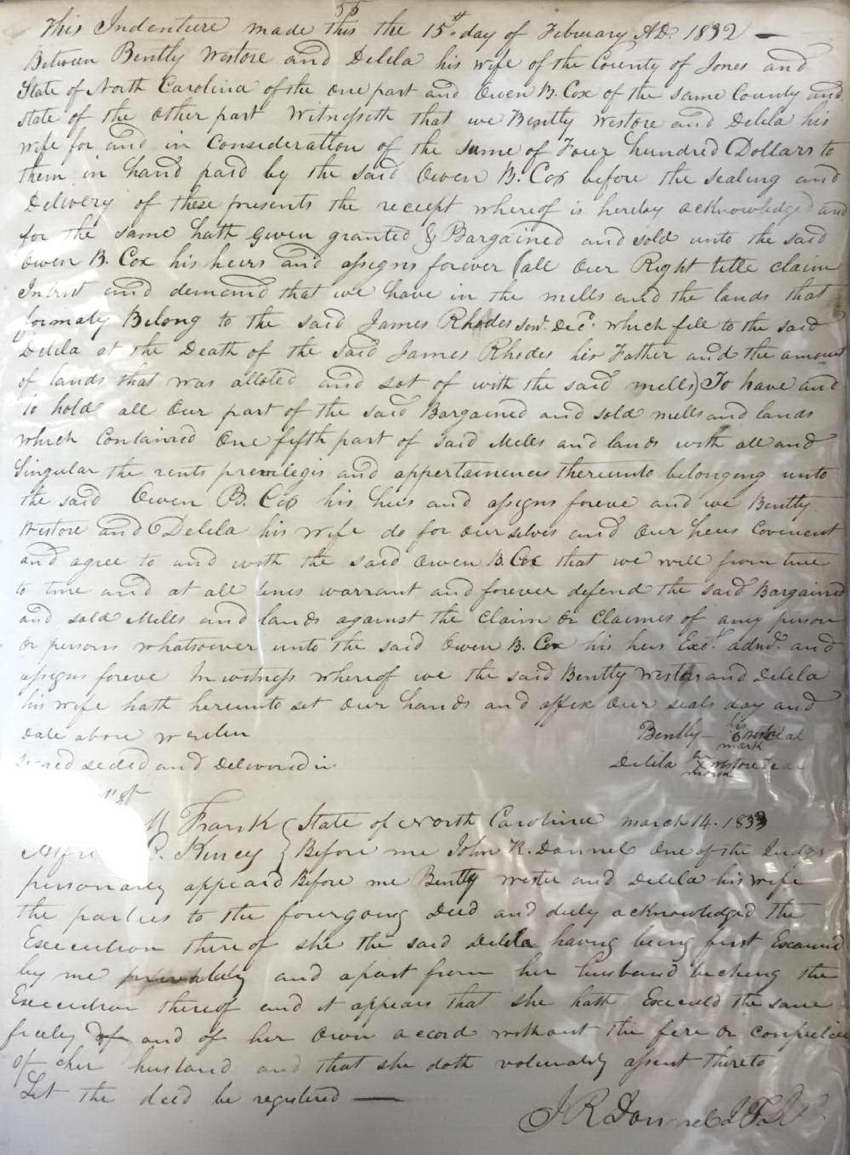 55
This Indenture made this the 15st day of February AD. 1832 —
Between Bently Westore and Delela his wife of the County of Jones and
State of North Carolina of the one part and Owen B. Cox of the same County and
State of the other part Witnesseth that we Bently Westore and Delela his
wife for and in Consideration of the sume of Four hundred Dollars to
them in hand paid by the said Owen B. Cox before the sealing and
Delivery of these presents the receipt whereof is hereby acknowledged and
for the same hath Given granted & Bargained and sold unto the said
Owen B. Cox his heirs and assigns forever (all Our Right title claim
Intrist and demand that we have in the mells and the lands that
formaly Belong to the said James Rhodes Sen. Dec. which fele to the said
Delela at the Death of the said James Rhodes his Father and the amount
of lands that was alloted and sot of with the said mells) To have and
to hold all Our part of the said Bargained and sold mells and lands
which Contained One fifth part of said Mells and lands with all and
Singular the rents previlegis and appertainences thereunto belonging unto
the said Owen B. Cox his heirs and assigns foreve and we Bently
Westore and Delela his wife do for Our selves and Our heirs Covenent
and agree to and with the said Owen B. Cox that we will from time
to time and at all times warrant and forever defend the said Bargained
and sold Mells and lands against the Claim or Claimes of any person
Or persons whatsoever unto the said Owen B. Cox his heirs Exd. admd. and
assigns foreve In witness whereof we the said Bently Westore and Delela
his wife hath hereunto set Our hands and affex Our seals day and
date above wrilen
Bently his mark
sealed and Delivered in
Delela X Westore Seal
mark
Frank { State of North Carolina march 14. 1833
Kincy } Before me John R. Donnel One of the Judgs
personaly appeard Before me Bently Westre and Delela his wife
the parties to the fourgoing Deed and duly acknowledged the
Execution thereof she the said Delela having being first Examind
by me privately and apart from her husband tuching the
Execution thereof and it appears that she hath Executed the same
freely and of her Own accord without the fere or
of her husband and that she doth volunaly assent thereto
Let the deed be registered —
J R Donnel